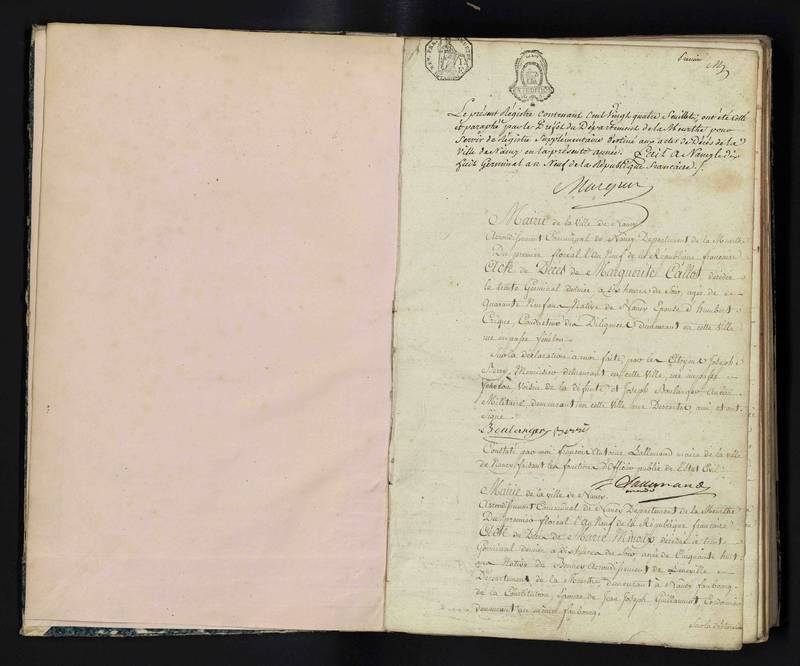 Premier
Le présent Régistre contenant Cent Vingt quatre feuillets, ont été cotté
et paraphé par le Préfet du Département de la Meurthe pour
servir de Régistre Supplémentaire destiné aux actes de Décès de la
Ville de Nancy en la présente année. Fait a Nancy le dix
huit Germinal an Neuf de la République francaise.
Marquis
Mairie de la Ville de Nancy
Arrondissement Communal de Nancy Département de la Meurthe
Du premier floréal l'An Neuf de la République françoise
Acte de Décès de Marguerite Callot décédée
le trente Germinal dernier à six heures du Soir, agée de
Quarante Neuf ans Native de Nancy Epouse d'humbert
Crique, Conducteur des Diligences demeurant en cette Ville
rue impasse fénélon.
Sur la déclaration à moi faite par les Citoyens Joseph
Menuisier demeurant en cette Ville, rue impasse
fénélon Voisin de la défunte et Joseph Boulanger
Militaire demeurant en cette Ville rue Descartes ami et ont
signé
Boulanger
Constaté par moi François Antoine Lallemand maire de la ville
de Nancy faisant les fonctions d'Officier public de l'Etat Civil.
Lallemand
Mairie de la ville de Nancy
Arrondissement Communal de Nancy Département de la Meurthe
Du premier floréal l'An Neuf de la République francaise
Acte de Décès de Marie décédée le trente
Germinal dernier à dix heures du Soir, agée de Cinquante huit
ans Native de Arrondissement de Lunéville
Département de la Meurthe demeurant à Nancy faubourg
de la Constitution, Epouse de Jean Joseph Guillaumot Cordonnier
demeurant au même faubourg.
Sur la déclaration